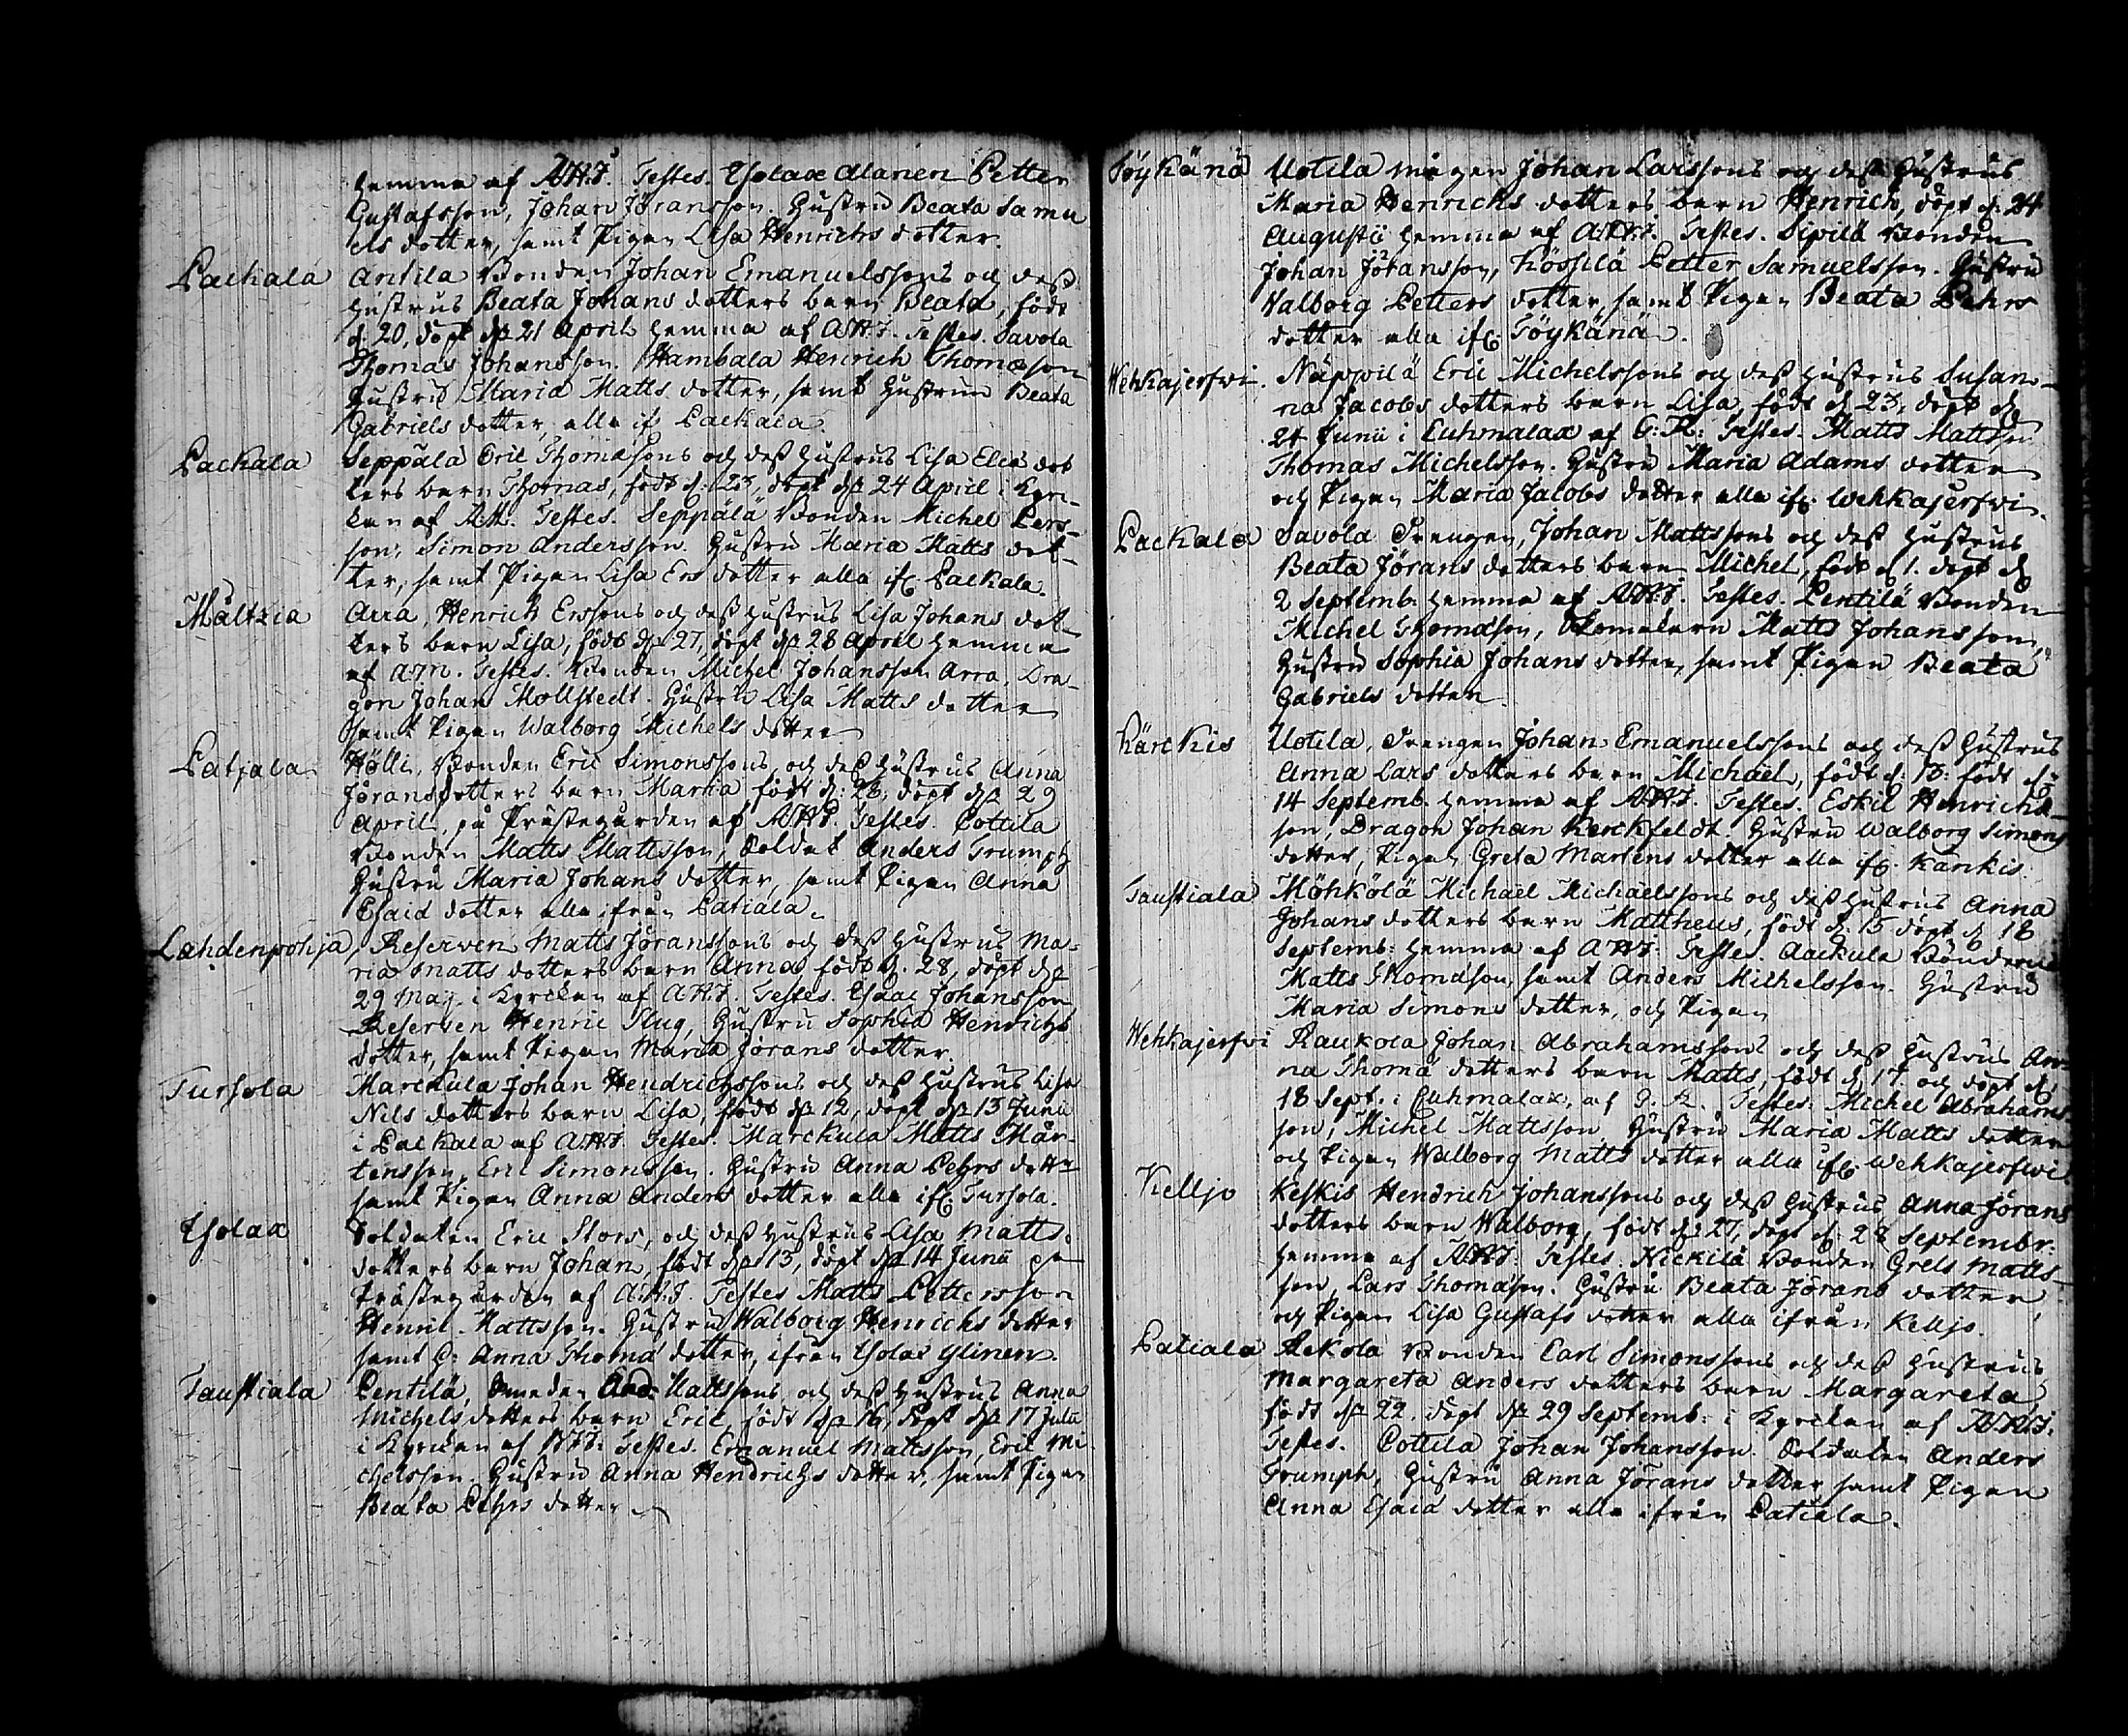 hemma af A.H.F. Testes. Ysolax Alanen Petter
Gustafsson, Johan Jöransson. Hustru Beata Samu
els dotter, samt Pigan Lisa Henrichs dotter.
Packala Antila Bonden Johan Emanuelssons och dess
hustrus Beata Johans dotters barn Beata, född
d. 20, döpt d. 21 April hemma af A.H.F. Testes. Savola
Thomas Johansson. Hambala Henrich Thomæson
Hustru Maria Matts dotter, samt Hustrun Beata
Gabriels dotter, alla if Packala.
Packala Seppälä Eric Thomæsons och dess hustrus Lisa Elias dot
ters barn Thomas, född d. 23, döpt d. 24 April i Kyr-
kan af Testes. Seppälä Bonden Michel Pers-
son, Simon Andersson. Hustru Maria Matts dot-
ter, samt Pigan Lisa Ers dotter alla ifr. Packala.
Måltzia Arra, Henrich Erssons och dess hustrus Lisa Johans dot
ters barn Lisa, född d. 27, döpt d. 28 April hemma
af Testes. Bonden Michel Johansson Arra, Dra-
gon Johan Mollstedt. Hustru Lisa Matts dotter
samt Pigan Walborg Michels dotter
Patjala Hölli, Bonden Eric Simonssons, och dess hustrus Anna
Jörans dotters barn Maria född d. 28, döpt d. 29
April, på Prästegården af A.H.F. Testes. Cottila
Bonden Matts Mattsson, Soldat Anders Trumph
Hustru Maria Johans dotter, samt Pigan Anna
Esaiæ dotter alla ifrån Patiala.
Lahdenpohja, Reserven Matts Jöranssons och dess hustrus Ma-
ria Matts dotters barn Anna, född d. 28, döpt d.
29 Maij i Kyrckan af A.H.F. Testes. Esaac Johansson
Reserven Henric Slug, Hustru Sophia Henrichs
dotter, samt Pigan Maria Jörans dotter.
Tursola Marckula Johan Hendrichssons och dess hustrus Lisa
Nils dotters barn Lisa, född d. 12, döpt d. 13 Junii
i Packala af A.H.F. Testes. Marckula Matts Mår-
tensson, Eric Simonsson. Hustru Anna Pehrs dottr
samt Pigan Anna Anders dotter alla ifr. Tursola.
Ysolax Soldaten Eric Stors, och dess hustrus Lisa Matts
dotters barn Johan, född d. 13, döpt d. 14 Junii på
Prästegården af A.H.F. Testes Matts Pettersson
Henric Mattsson. Hustru Walborg Henrichs dotter
samt P: Anna Thomæ dotter, ifrån Ysolax Ylinen.
Taustiala Pentilä, Smeden And: Mattssons, och dess hustrus Anna
Michels dotters barn Eric, född d. 16, döpt d. 17 Julii
i Kyrckan af A.H.F. Testes. Emanuel Mattsson, Eric Mi
chelsson. Hustru Anna Hendrichs dotter, samt Pigan
Beata Pehrs dotter
Töykänä Uotila mågen Johan Larssons och dess hustrus
Maria Henrichs dotters barn Henrich, döpt d. 24
Augustii hemma af A.H.F. Testes. Sipilä Bonden
Johan Jöransson, Kössilä Petter Samuelsson. Hustru
Walborg Petters dotter, samt Pigan Beata Pehrs
dotter alla ifr. Töykänä.
Wehkajerfwi. Näppilä Eric Michelssons och dess hustrus Susan-
na Jacobs dotters barn Lisa, född d. 23, döpt d.
24 Junii i Cuhmalax af G: R: Testes. Matts Mattson
Thomas Michelsson. Hustru Maria Adams dotter
och Pigan Maria Jacobs dotter alla ifr. Wehkajerfwi.
Packala Savola Drengen, Johan Mattssons och dess hustrus
Beata Jörans dotters barn Michel, född d. 1. döpt d.
2 Septemb. hemma af A.H.F. Testes. Pentilä Bonden
Michel Thomæson, Skomakern Matts Johansson,
Hustru Sophia Johans dotter, samt Pigan Beata
Gabriels dotter.
Kärckis Uotila, Drengen Johan Emanuelssons och dess hustrus
Anna Lars dotters barn Michael, född d: 13: född d.
14 Septemb. hemma af A.H.F. Testes. Eskil Henrichs-
son, Dragon Johan Kerckfeldt. Hustru Walborg Simons
dotter, Pigan Greta Martens dotter alla ifr. Kärckis.
Taustiala Möhkölä Michael Michaelssons och dess hustrus Anna
Johans dotters barn Mattheus, född d. 15 döpt d. 18
Septemb: hemma af A.H.F. Testes. Aackula Bönderne
Matts Thomæson, samt Anders Michelsson. Hustru
Maria Simons dotter, och Pigan
Wehkajerfwi Raukola Johan Abrahamssons och dess hustrus An-
na Thomæ dotters barn Matts, född d. 17. och döpt d.
18 Sept. i Cuhmalax, af G. R. Testes. Michel Abrahams
son, Michel Mattsson, Hustru Maria Matts dotter
och Pigan Walborg Matts dotter alla ifr. Wehkajerfwi
Kelljo Keskis Hendrich Johanssons och dess hustrus Anna Jörans
dotters barn Walborg, född d. 27, döpt d. 28 Septembr:
hemma af A.H.F. Testes. Nickilä Bonden Grels Matts-
son, Lars Thomæson. Hustru Beata Jörans dotter
och Pigan Lisa Gustafs dotter alla ifrån Kelljo.
Patiala Rekola Bonden Carl Simonssons och dess hustrus
Margareta Anders dotters barn Margareta,
född d. 22. döpt d. 29 Septemb: i Kyrckan af A.H.F.
Testes. Cottila Johan Johansson. Soldaten Anders
Trumph, Hustru Anna Jörans dotter samt Pigan
Anna Esaiæ dotter alla ifrån Patiala.